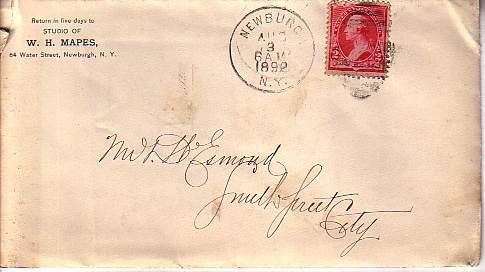 Return in five days to
STUDIO OF
W. H. MAPES,
64 Water Street, Newburgh, N. Y.
NEWBURGH
AUG
3
6 AM
1892
N.Y.
Esmond
Smith Street
City.